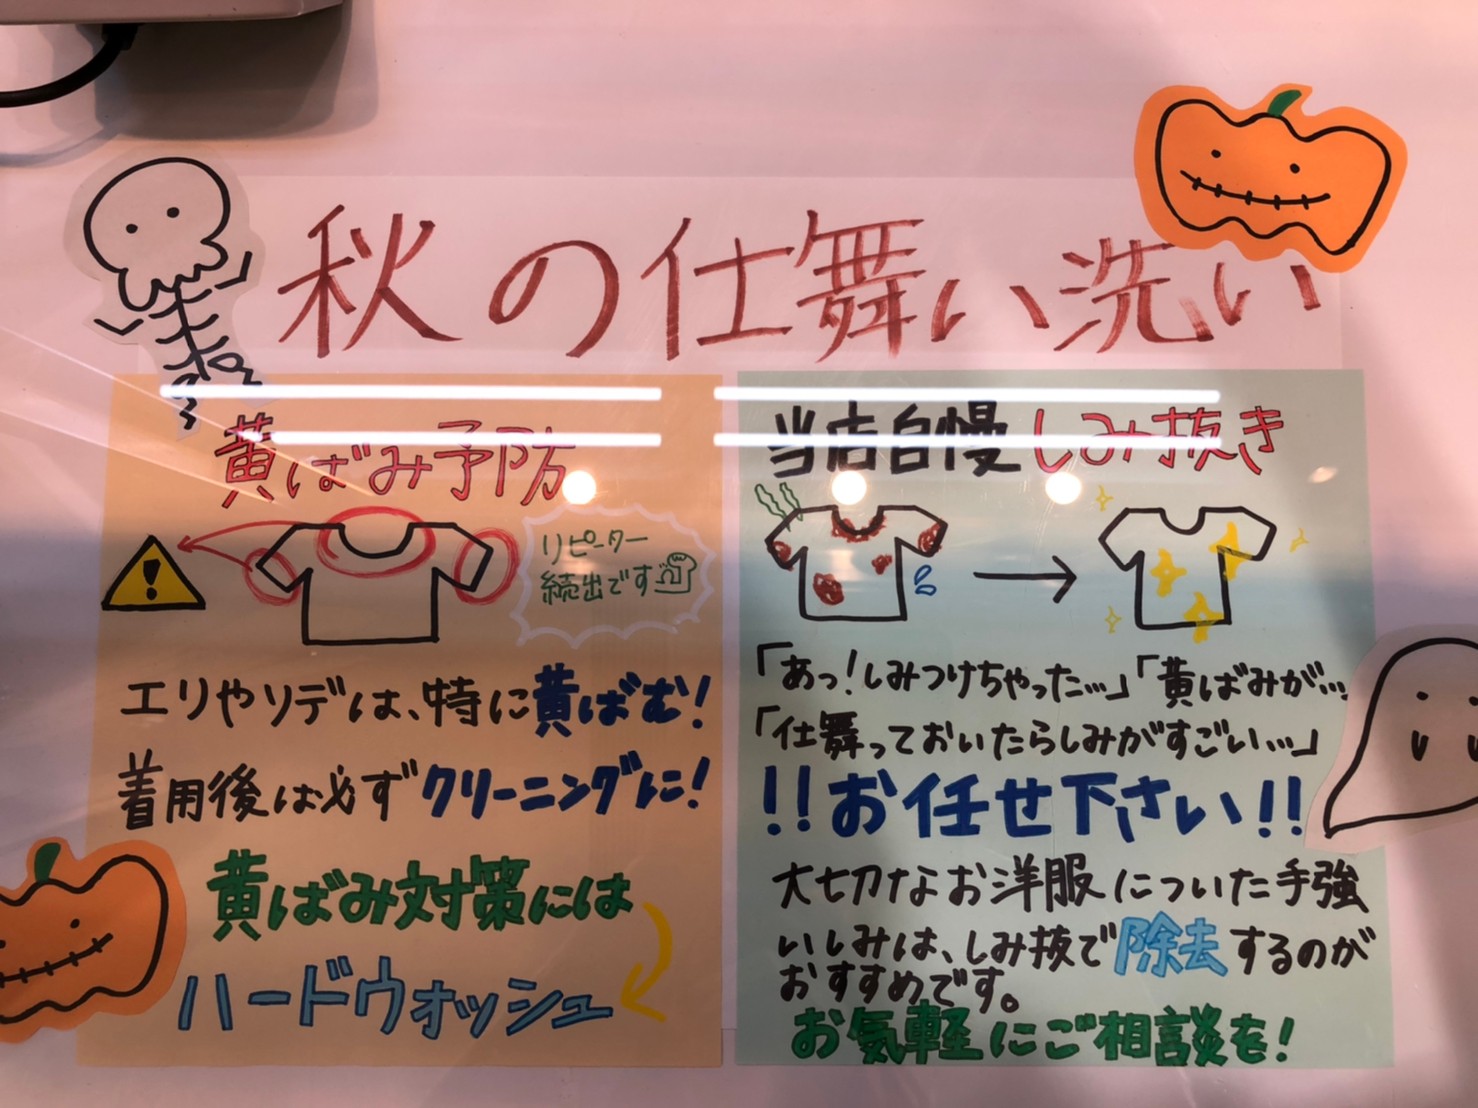 秋の仕舞い洗い
黄ばみ予防
リピーター
続出です
エリやソデは、特に黄ばむ!
着用後は必ずクリーニングに!
黄ばみ対策には
ハードウォッシュ
当店自慢しみ抜き
「あっ!しみつけちゃった…」「黄ばみが…
「仕舞っておいたらしみがすごい…」
!!お任せ下さい!!
大切なお洋服についた手強
いしみは、しみ抜で除去するのが
おすすめです。
お気軽にご相談を!